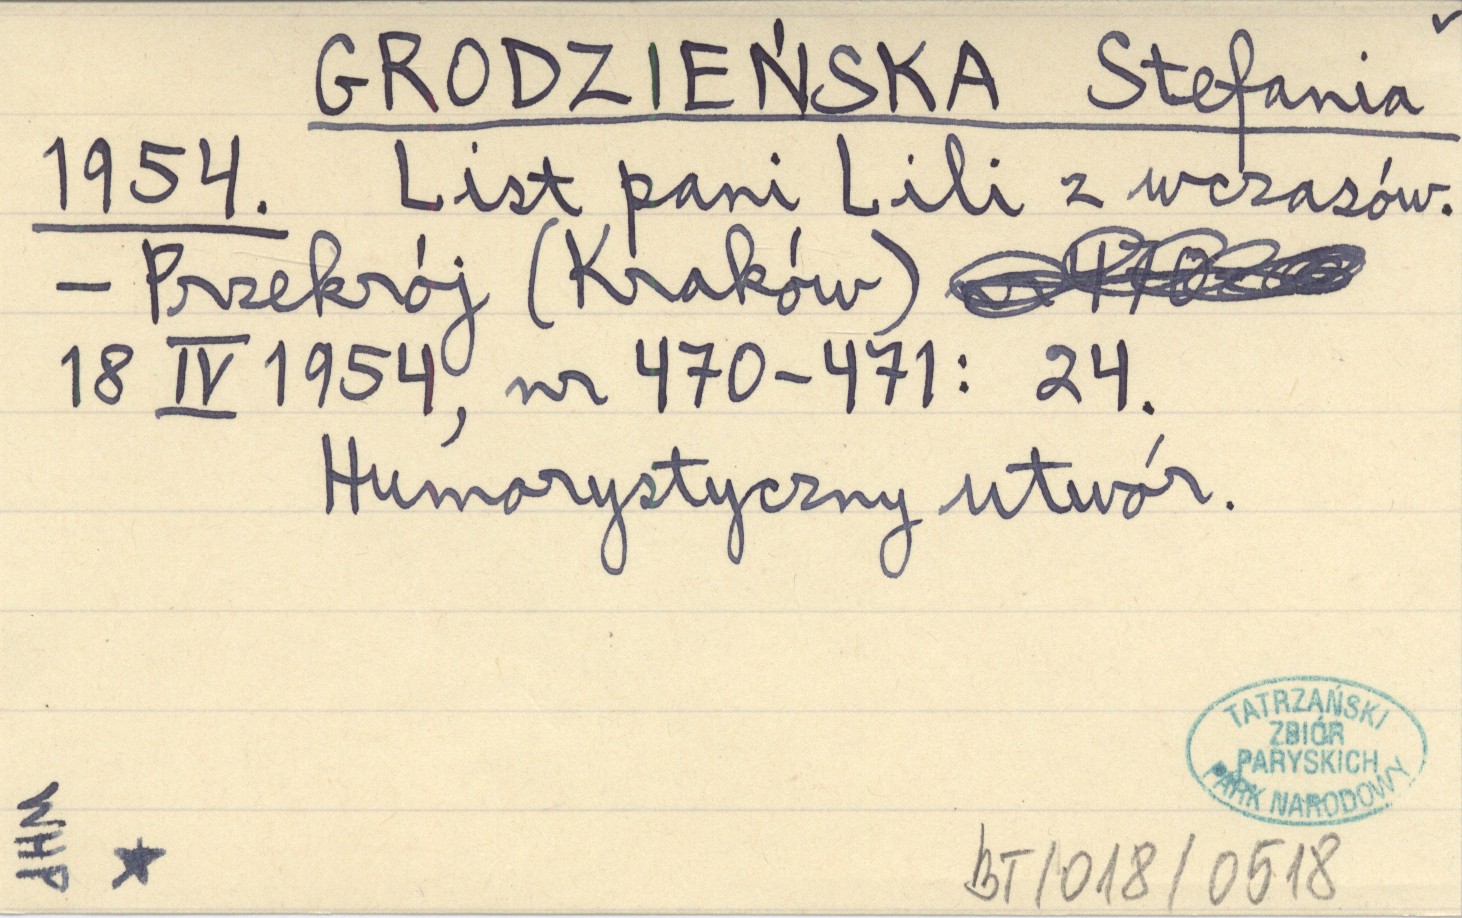 GRODZIEŃSKA Stefania
1954. List pani Lili z wczasów.
– Przekrój (Kraków)
18 IV 1954, nr 470–471: 24.
Humorystyczny utwór.
TATRZAŃSKI
ZBIÓR
PARYSKICH
PARK NARODOWY
WHP
BT/018/0518